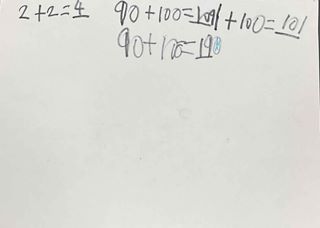 2+2=4 90+100=1091+100=101
90+100=190